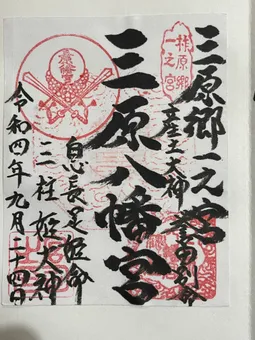 三原郷一之宮
産土大神 誉田別命
三原八幡宮
息長足姫命
二柱姫大神
令和四年九月二十四日
柞原郷
一之宮